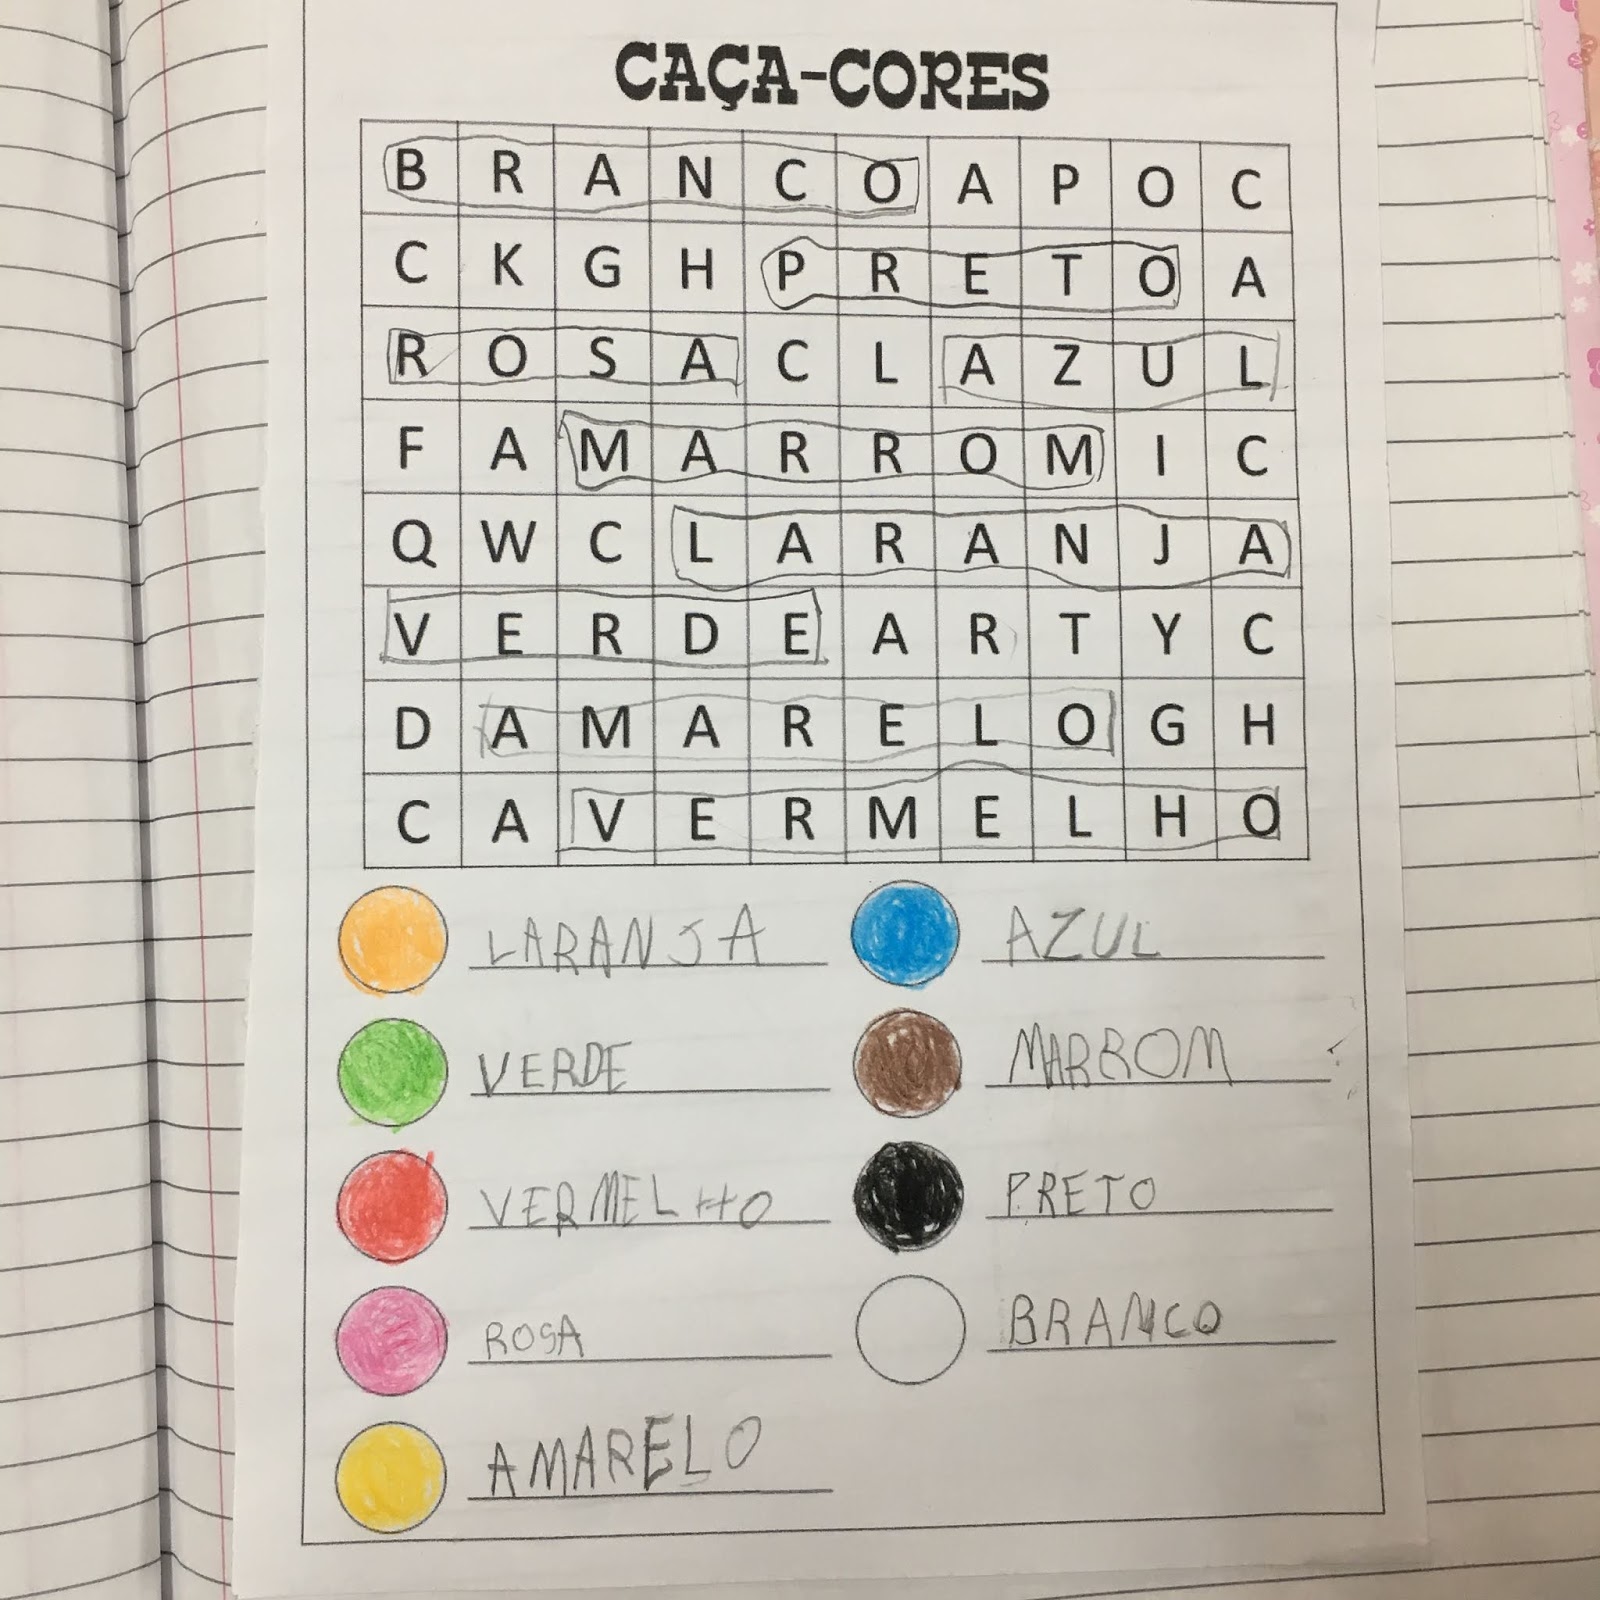 CAÇA-CORES
B R A N C O A P O C
C K G H P R E T O A
R O S A C L A Z U L
F A M A R R O M I C
Q W C L A R A N J A
V E R D E A R T Y C
D A M A R E L O G H
C A V E R M E L H O
LARANJA AZUL
VERDE MARROM
VERMELHO PRETO
ROSA BRANCO
AMARELO